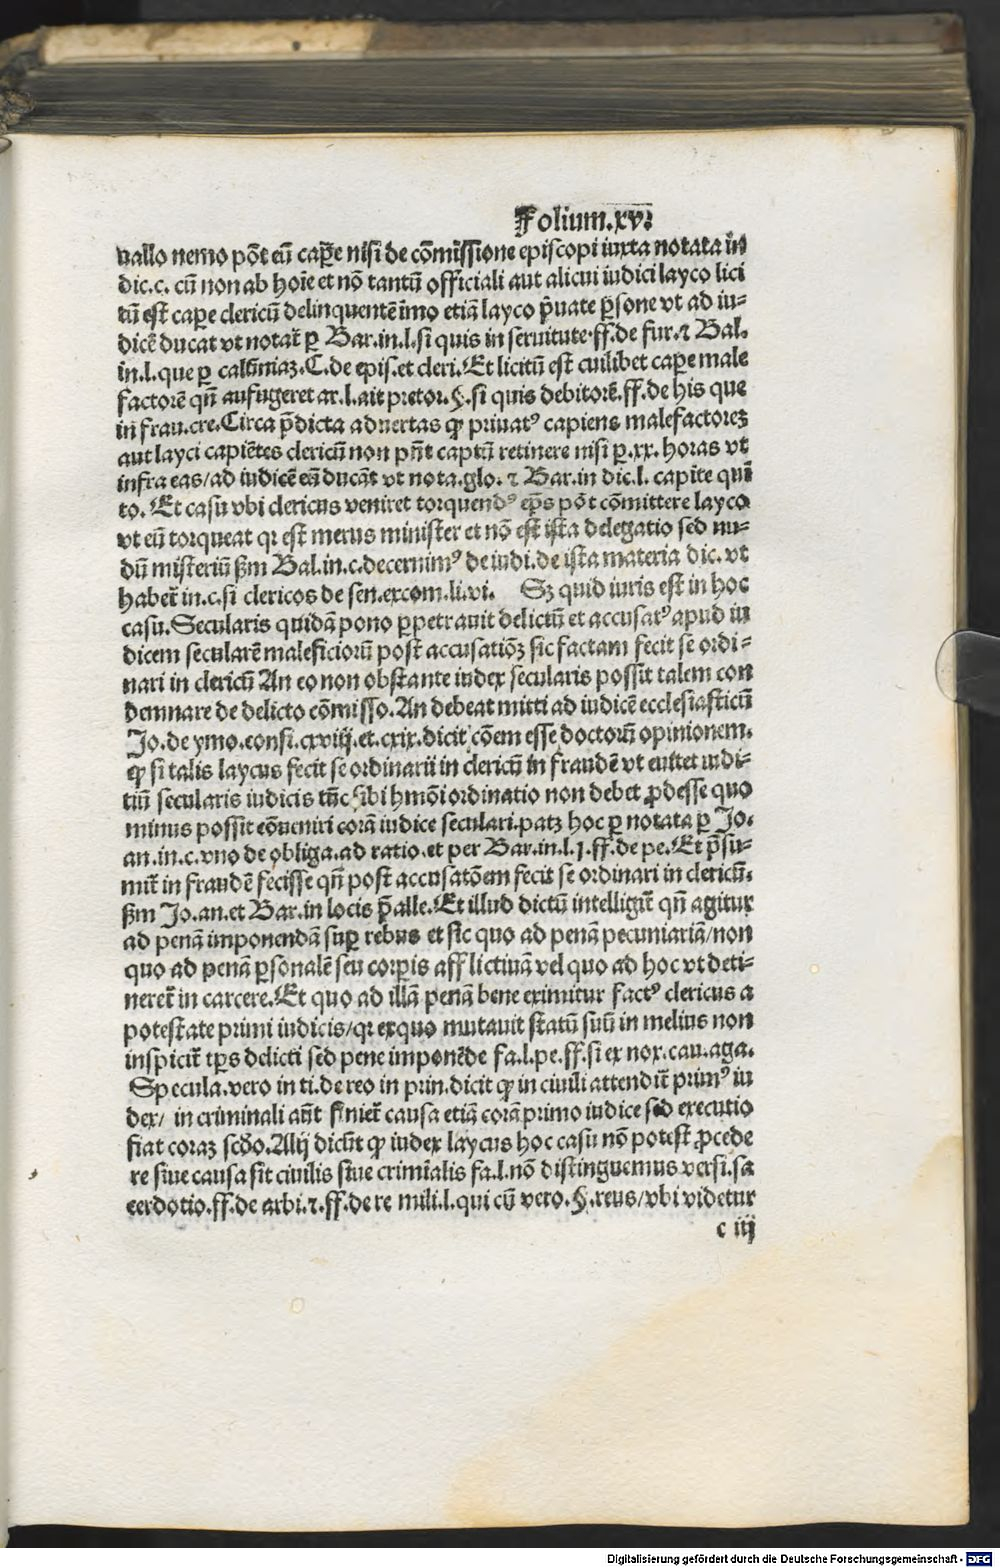 Folium.xv.
uallo nemo põt eũ cap̲e nisi de cõmissione episcopi iuxta notata in
dic.c. cũ non ab hoĩe et nõ tantũ officiali aut alicui iudici layco lici
tũ est cap̲e clericũ delinquentẽ imo etiã layco p̱uate p̲sone vt ad iu-
dicẽ ducat vt notat᷑ p̲ Bar.in.l.si quis in seruitute.ff.de fur.⁊ Bal.
in.l.que p̲ calũniaz.C.de epis.et cleri.Et licitũ est cuilibet cap̲e male
factorẽ qñ aufugeret ar.l.ait pretor.§.si quis debitorẽ.ff.de his que
in frau.cre.Circa p̄dicta aduertas ꝙ priuatꝰ capiens malefactorez
aut layci capiẽtes clericũ non pñt captũ retinere nisi p̲.xx. horas vt
infra eas/ad iudicẽ eũ ducãt vt nota.glo. ⁊ Bar.in dic.l. capite quĩ
to. Et casu vbi clericus veniret torquendꝰ ep̃s põt cõmittere layco
vt eũ torqueat qꝛ est merus minister et nõ est ista delegatio sed nu-
dũ misteriũ ẞm Bal.in.c.decernimꝰ de iudi.de ista materia dic. vt
habet᷑ in.c.si clericos de sen.excom.li.vi. Sꝫ quid iuris est in hoc
casu.Secularis quidã pono p̲petrauit delictũ et accusatꝰ apud iu
dicem secularẽ maleficiorũ post accusatiõꝫ sic factam fecit se ordi-
nari in clericũ An eo non obstante iudex secularis possit talem con
demnare de delicto cõmisso.An debeat mitti ad iudicẽ ecclesiasticũ
Jo.de ymo.consi.cxviij.et.cxix.dicit cõem esse doctorũ opinionem.
ꝙ si talis laycus fecit se ordinarii in clericũ in fraudẽ vt euitet iudi-
tiũ secularis iudicis tũc sibi hmõi ordinatio non debet ꝓdesse quo
minus possit cõueniri corã iudice seculari.patꝫ hoc p̲ notata p̲ Jo.
an.in.c.vno de obliga.ad ratio.et per Bar.in.l.j.ff.de pe.Et p̄su-
mit᷑ in fraudẽ fecisse qñ post accusatõem fecit se ordinari in clericũ.
ẞm Jo.an.et Bar.in locis p̄alle.Et illud dictũ intelligit᷑ qñ agitur
ad penã imponendã sup̲ rebus et sic quo ad penã pecuniariã/non
quo ad penã p̲sonalẽ seu corp̲is afflictiuã vel quo ad hoc vt deti-
neret᷑ in carcere.Et quo ad illã penã bene eximitur factꝰ clericus a
potestate primi iudicis/qꝛ exquo mutauit statũ suũ in melius non
inspicit᷑ tp̃s delicti sed pene imponẽde fa.l.pe.ff.si ex nox.cau.aga.
Specula.vero in ti.de reo in prin.dicit ꝙ in ciuili attendit᷑ primꝰ iu
dex/ in criminali aũt finiet᷑ causa etiã corã primo iudice sed executio
fiat coraꝫ scdo.Alij dicũt ꝙ iudex laycus hoc casu nõ potest ꝓcede
re siue causa sit ciuilis siue crimĩalis fa.l.nõ distinguemus versi.sa
cerdotio.ff.de arbi.⁊.ff.de re mili.l.qui cũ vero.§.reus/vbi videtur
c iij
Digitalisierung gefördert durch die Deutsche Forschungsgemeinschaft - DFG